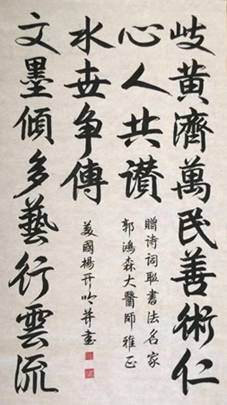 岐黃濟萬民善術仁
心人共讚
文墨傾多藝行雲流
水世争傳
贈诗词聯書法名家
郭鴻森大醫師雅正
美國楊开吟并書